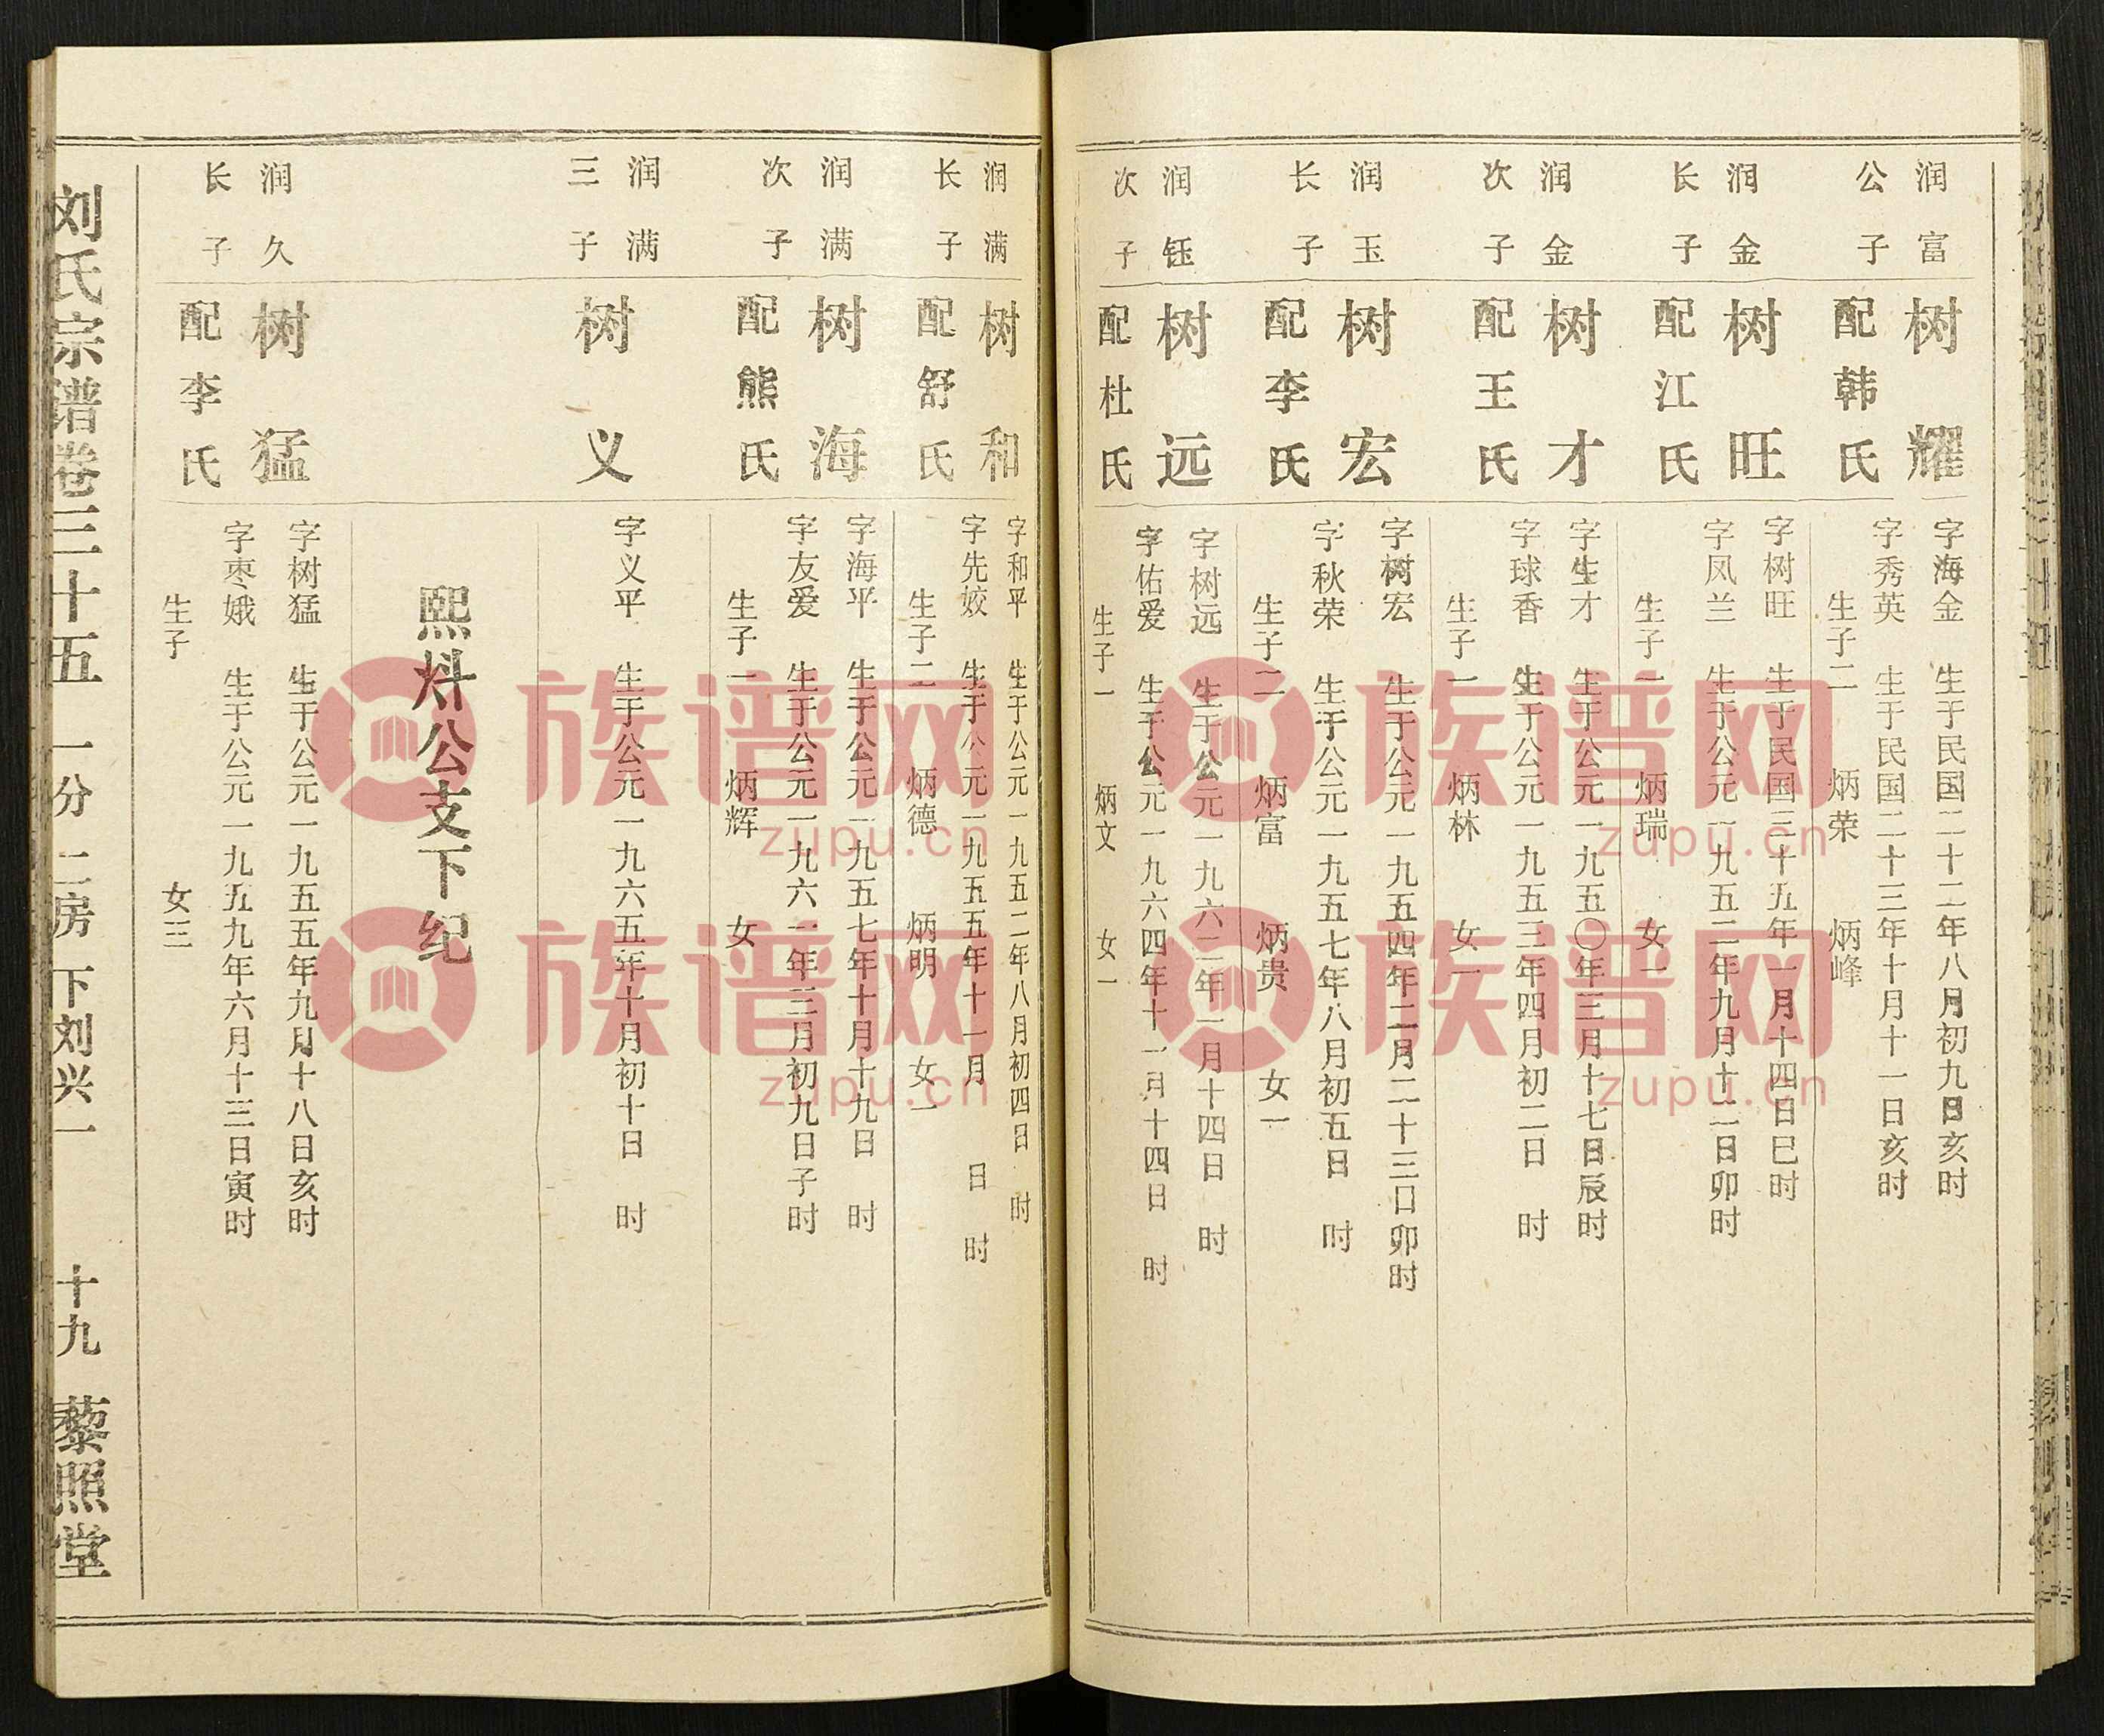 润富
公子
树耀
配韩氏
字海金 生于民国二十二年八月初九日亥时
字秀英 生于民国二十三年十月十一日亥时
生子二 炳荣 炳峰
润金
长子
树旺
配江氏
字树旺 生于民国三十五年一月十四日巳时
字凤兰 生于公元一九五二年九月十二日卯时
生子一 炳瑞 女一
润金
次子
树才
配王氏
字生才 生于公元一九五〇年三月十七日辰时
字球香 生于公元一九五三年四月初二日 时
生子一 炳林 女一
润玉
长子
树宏
配李氏
字树宏 生于公元一九五四年二月二十三口卯时
字秋荣 生于公元一九五七年八月初五日 时
生子二 炳富 炳贵 女一
润钰
次子
树远
配杜氏
字树远 生于公元一九六二年一月十四日 时
字佑爱 生于公元一九六四年十一月十四日 时
生子一 炳文 女一
润满
长子
树和
配舒氏
字和平 生于公元一九五二年八月初四日 时
字先姣 生于公元一九五五年十一月 日 时
生子二 炳德 炳明 女一
润满
次子
树海
配熊氏
字海平 生于公元一九五七年十月十九日 时
字友爱 生于公元一九六一年三月初九日子时
生子一 炳辉 女一
润满
三子
树义
字义平 生于公元一九六五年十月初十日 时
熙炓公支下纪
润久
长子
树猛
配李氏
字树猛 生于公元一九五五年九月十八日亥时
字枣娥 生于公元一九五九年六月十三日寅时
生子 女三
刘氏宗谱卷三十五 一分 二房 下刘兴一 十九 藜照堂
族谱网
zupu.cn
族谱网
zupu.cn
族谱网
zupu.cn
族谱网
zupu.cn